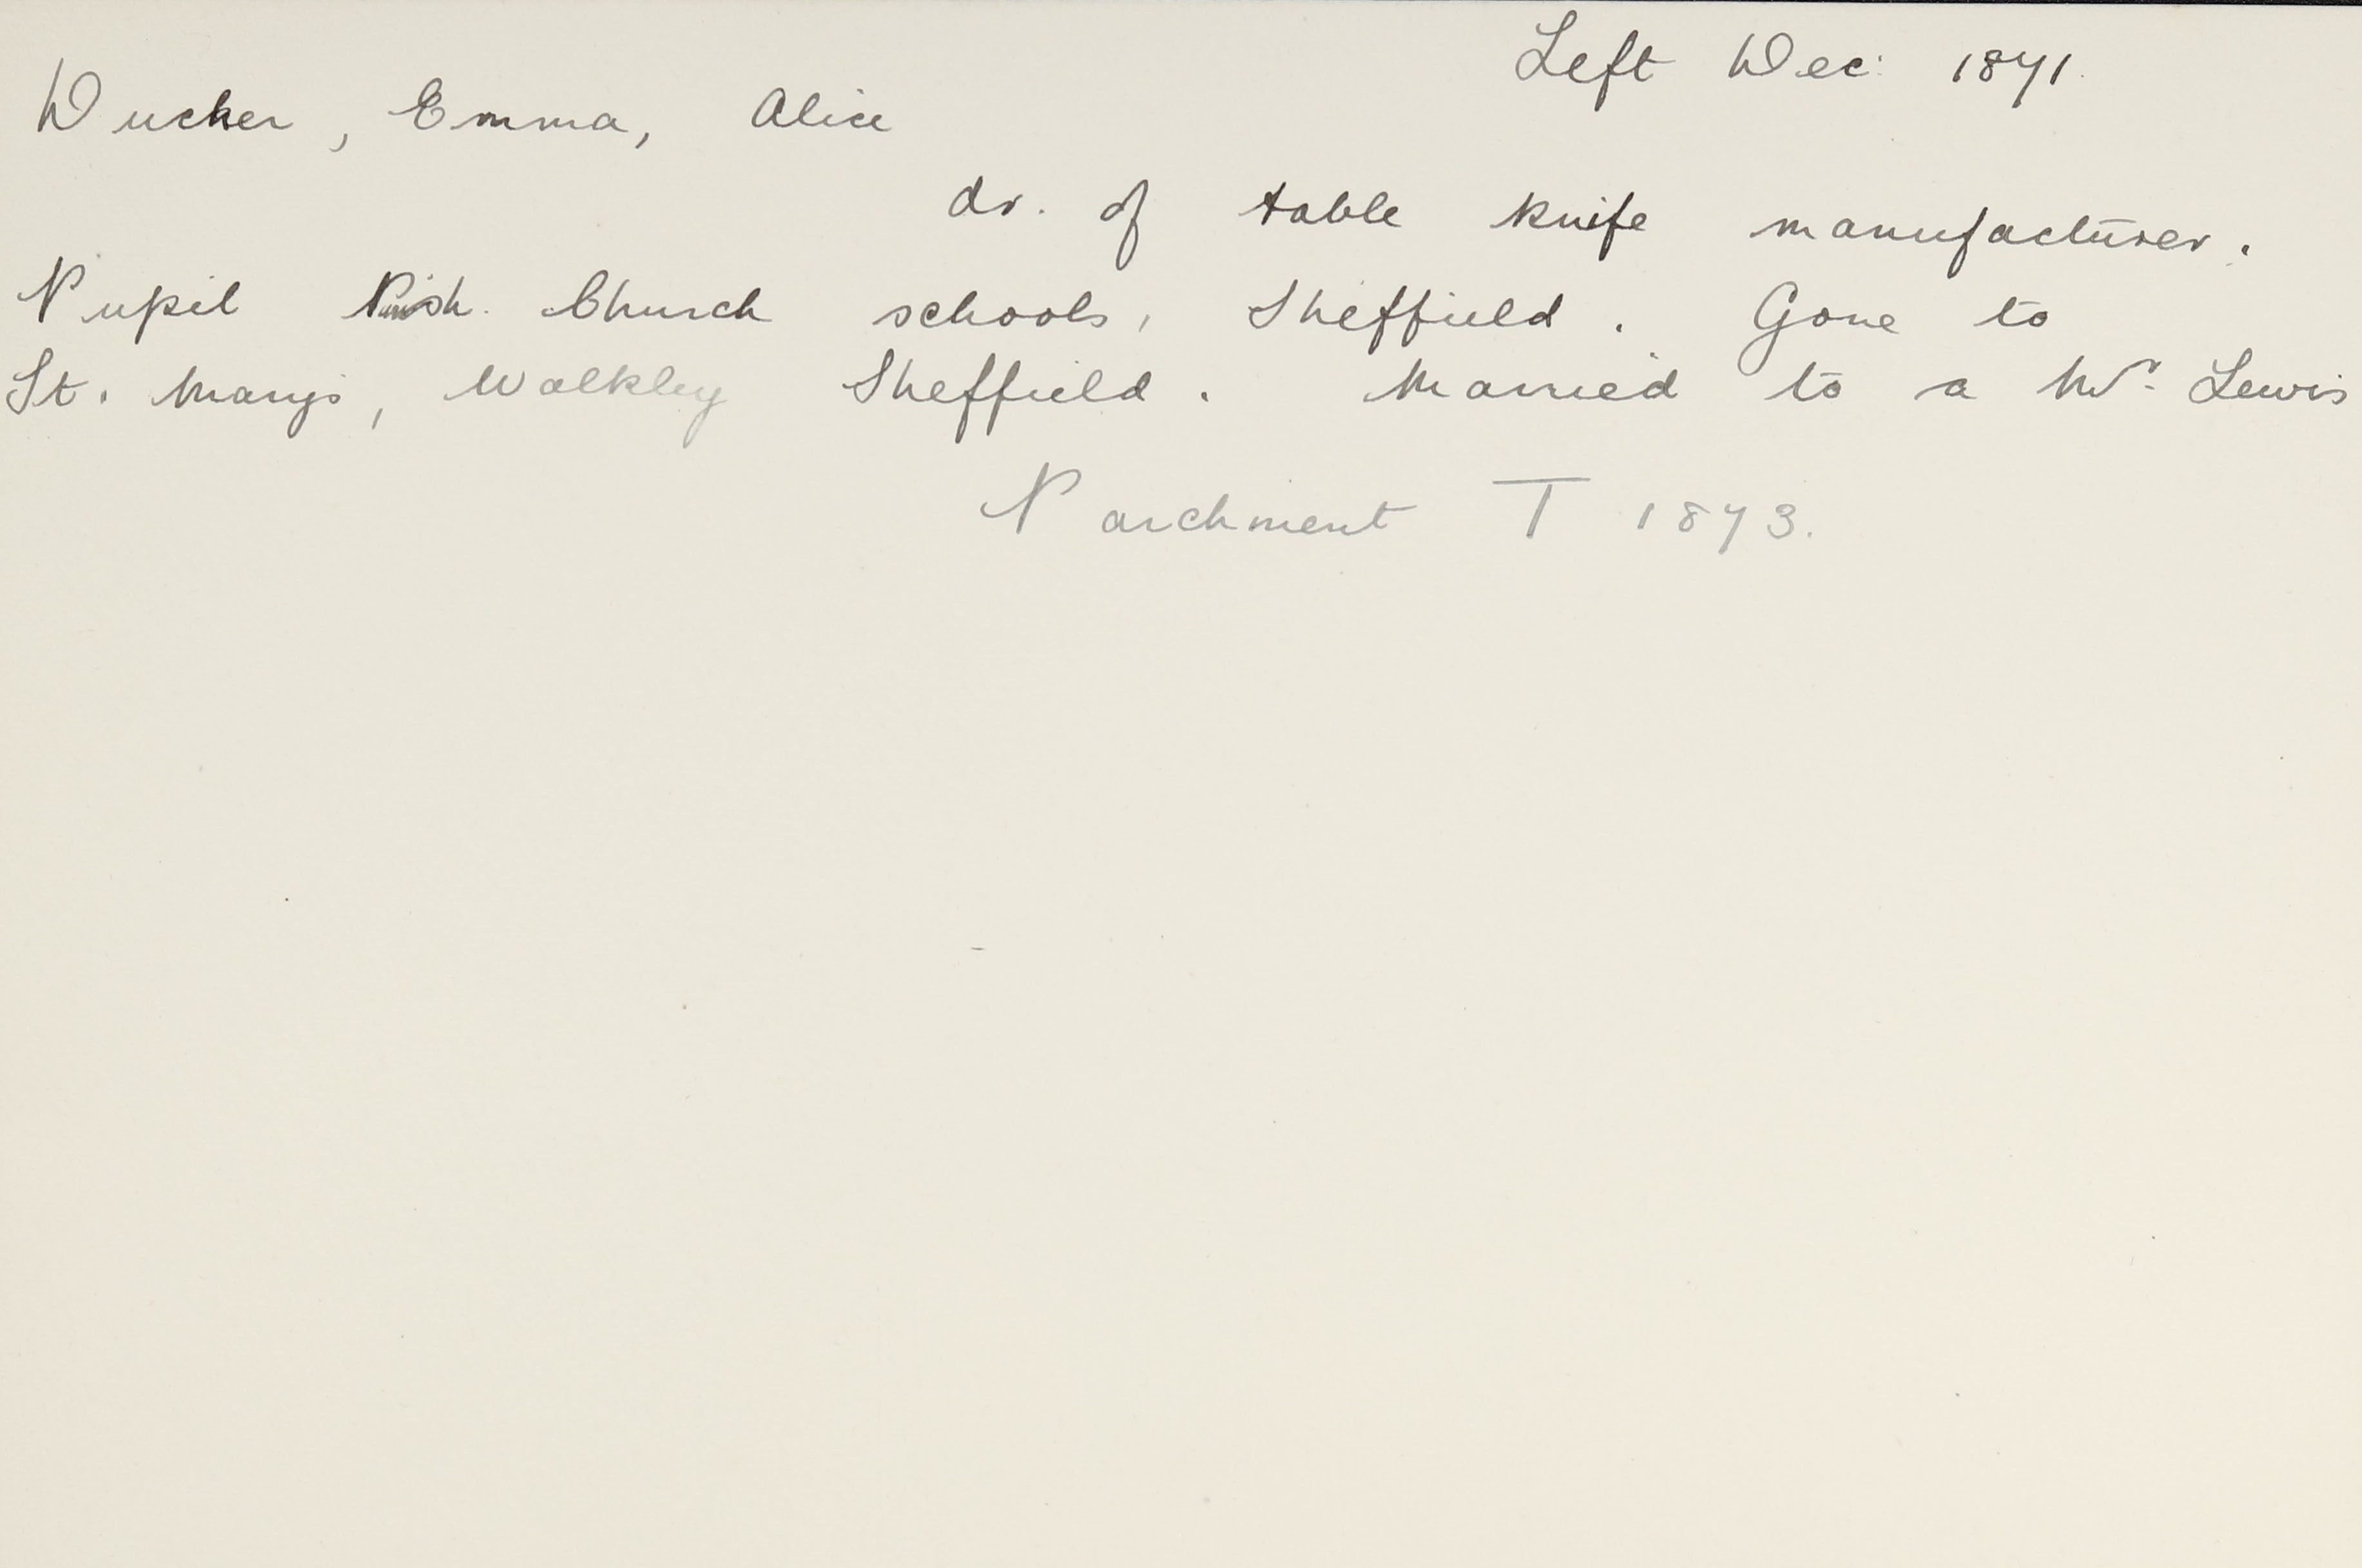 Left Dec: 1871.
Ducker, Emma, Alice
dr. of table knife manufacturer.
Pupil Parish Church schools, Sheffield. Gone to
St. Mary's, Walkley Sheffield. Married to a Mr. Lewis
Parchment T 1873.